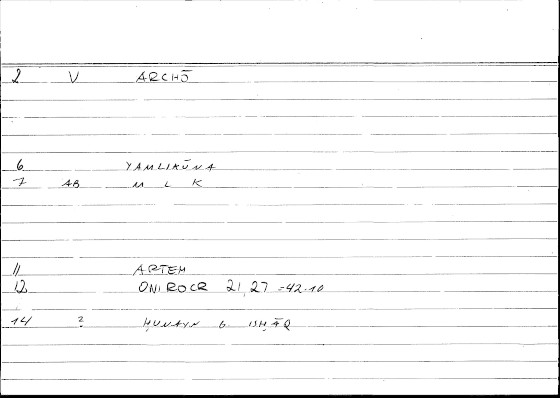 2 V ARCHŌ
6 YAMLIKŪNA
7 AB M L K
11 ARTEM
12 ONIROCR 21,27 =42.10
14 ? ḤUNAYN b ISḤĀQ